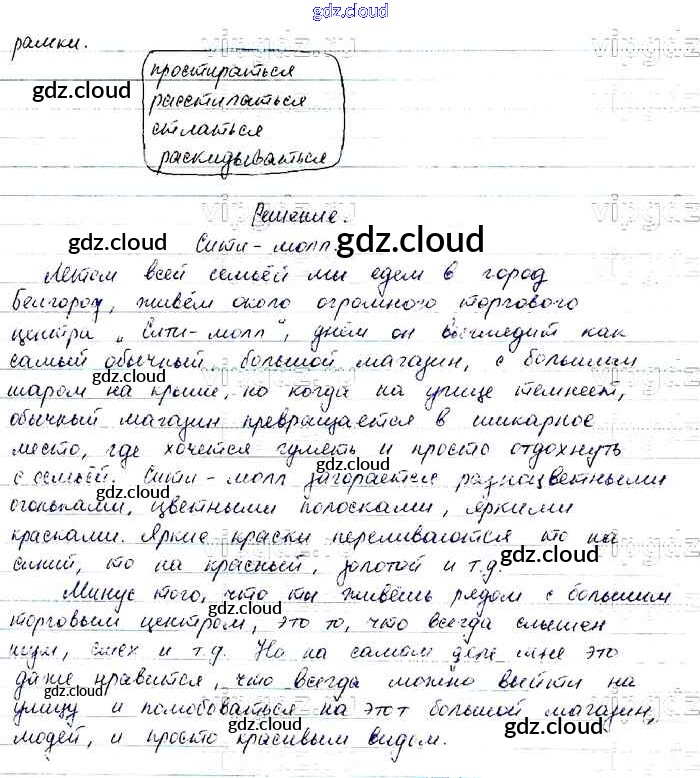 gdz.cloud
рамки.
vipgdz.ru
gdz.cloud
gdz.cloud
простираться
расстилаться
стлаться
раскидываться
Решение.
gdz.cloud
Сити-молл.
gdz.cloud
Летом всей семьёй мы едем в город
Белгород, живём около огромного торгового
центра „Сити-молл", днём он выглядит как
самый обычный, большой магазин, с большим
шаром на крыше, но когда на улице темнеет,
gdz.cloud
gdz.cloud
обычный магазин превращается в шикарное
место, где хочется гулять и просто отдохнуть
с семьёй. Сити-молл загорается разноцветными
gdz.cloud
огоньками, цветными полосками, яркими
gdz.cloud
красками. Яркие краски переливаются то на
синий, то на красный, золотой и т.д.
gdz.cloud
Минус того, что ты живёшь рядом с большим
gdz.cloud
торговым центром, это то, что всегда слышен
шум, смех и т.д. Но на самом деле мне это
даже нравится, что всегда можно выйти на
gdz.cloud
gdz.cloud
улицу и помобоваться на этот большой магазин,
людей, и просто красивым видом.
gdz.cloud
gdz.cloud